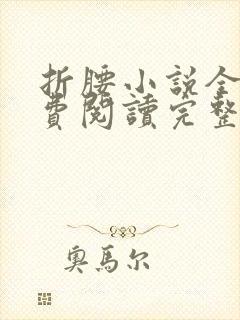 折腰小説全
費閱讀完整
奧馬尔